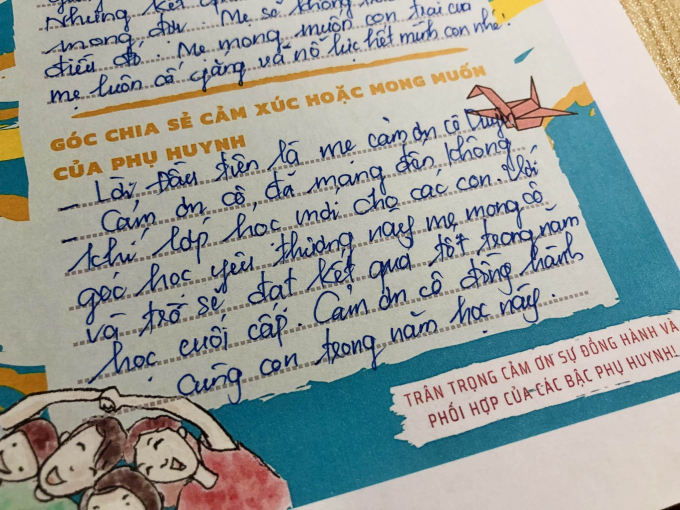 Những kết
mong đợi. Mẹ sẽ không
điều đó. Mẹ mong muốn con trai của
mẹ luôn cố gắng và nỗ lực hết mình con nhé!
GÓC CHIA SẺ CẢM XÚC HOẶC MONG MUỐN
CỦA PHỤ HUYNH
- Lời đầu tiên là mẹ cảm ơn cô Duyên
- Cảm ơn cô, đã mang đến không
khí lớp học mới cho các con. Với
góc học yêu thương này mẹ mong cô
và trò sẽ đạt kết quả tốt trong năm
học cuối cấp. Cảm ơn cô đồng hành
cùng con trong năm học này.
TRÂN TRỌNG CẢM ƠN SỰ ĐỒNG HÀNH VÀ
PHỐI HỢP CỦA CÁC BẬC PHỤ HUYNH!